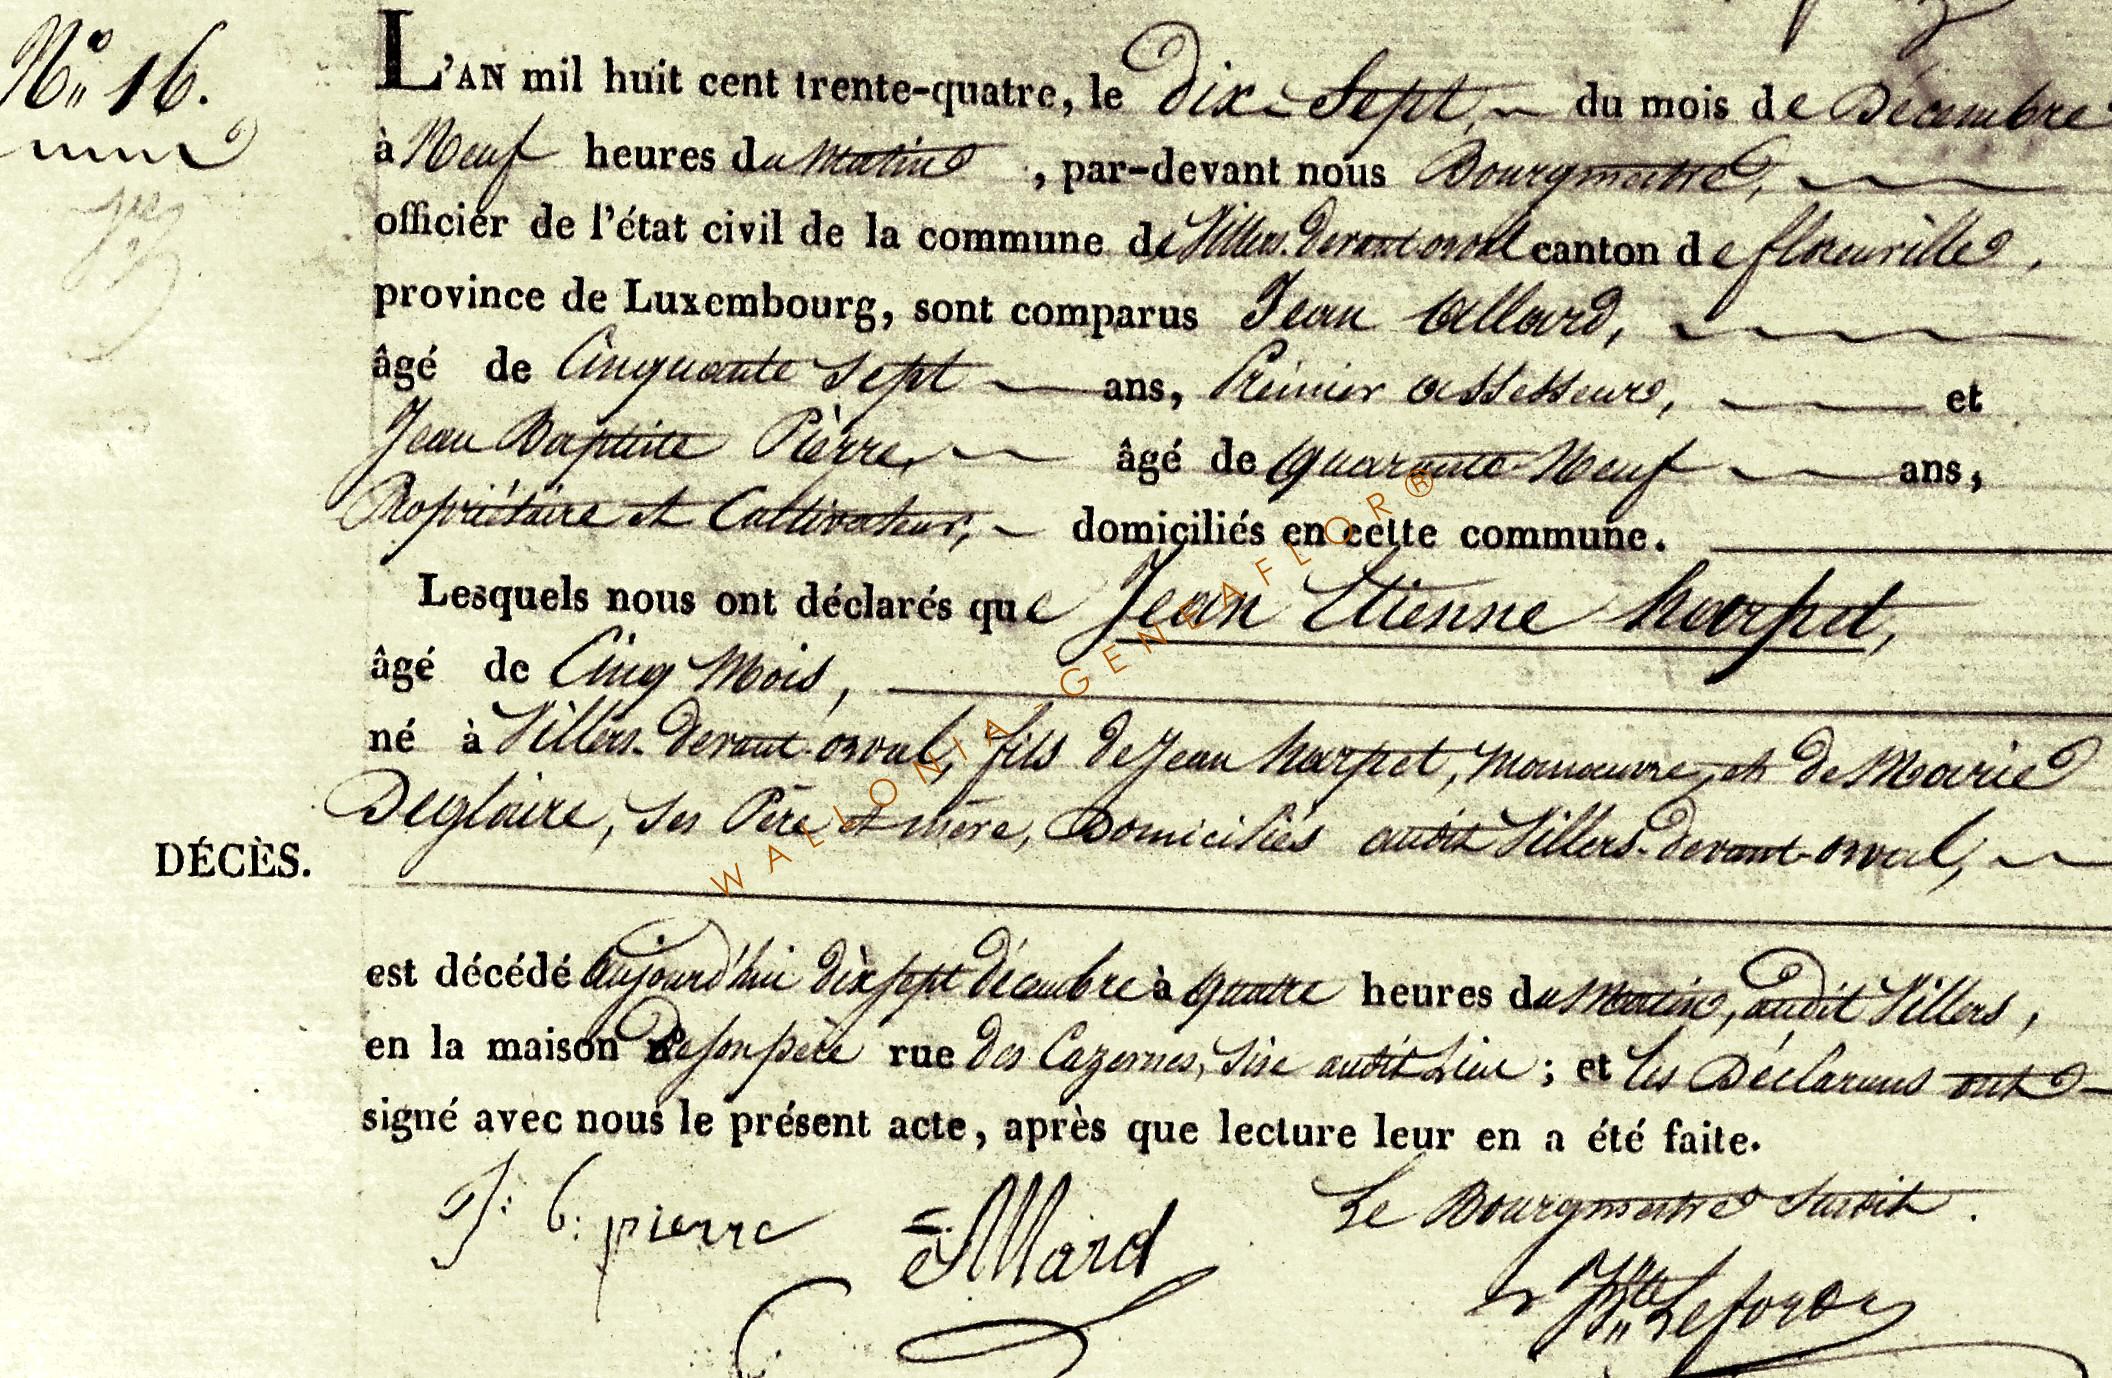 N° 16.
L'AN mil huit cent trente-quatre, le dix-sept du mois de Décembre
à Neuf heures du Matin, par-devant nous Bourgmestre,
officier de l'état civil de la commune de Villers-devant-orval canton de florenville,
province de Luxembourg, sont comparus Jean Allard,
âgé de Cinquante sept ans, Prémier assesseur, et
Jean Baptiste Pièrre, âgé de Quarante-Neuf ans,
Propriétaire et Cultivateur, domiciliés en cette commune.
Lesquels nous ont déclarés que Jean Etienne harpet,
âgé de Cinq Mois,
né à Villers-devant-orval, fils de Jean harpet, manœuvre, et de Marie
Deglaire, ses Père et mère, Domiciliés audit Villers-devant-orval,
DÉCÈS.
est décédé aujourd'hui dix sept décembre à quatre heures du Matin, audit Villers,
en la maison de son père rue des Cazernes, sise audit Lieu ; et les Déclarans ont
signé avec nous le présent acte, après que lecture leur en a été faite.
J: b: pierre Allard Le Bourgmestre Susdit.
WALLONIA-GENEAFLOR®